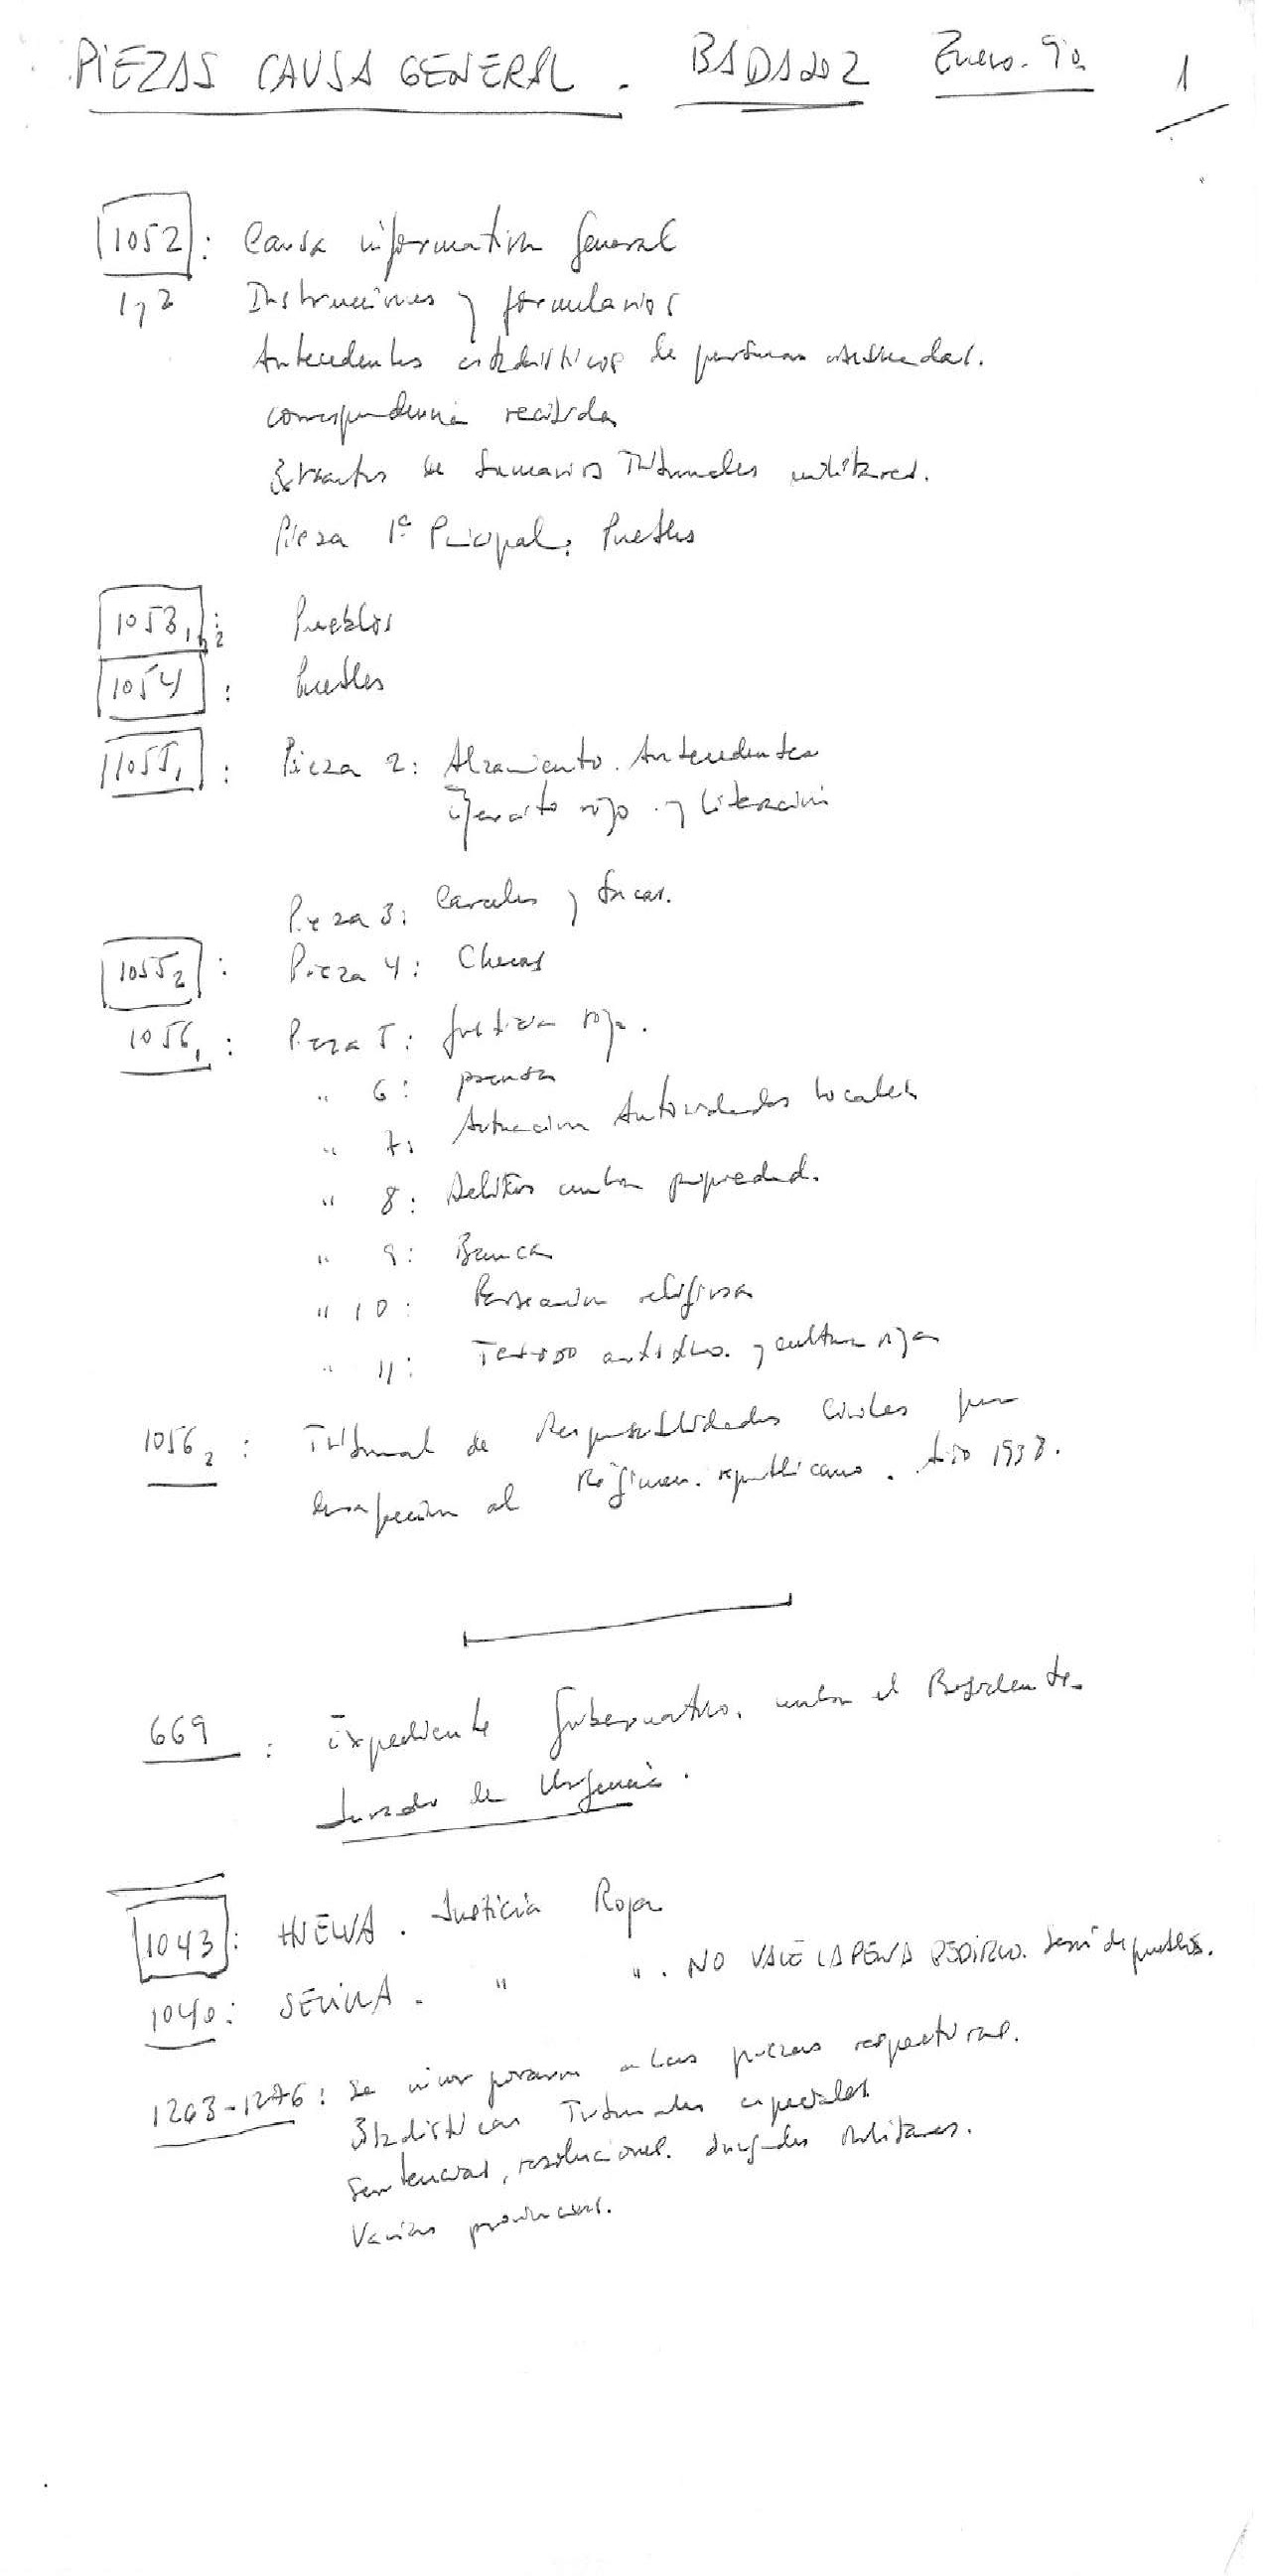 PIEZAS CAUSA GENERAL. BADAJOZ Enero-90 1
1052: Causa informativa General
1 y 2 Instrucciones y formularios
Antecedentes estadísticos de personas asesinadas.
correspondencia recibida
Extractos de Sumarios Tribunales militares.
Pieza 1ª Principal: Pueblos
1053 1 y 2: Pueblos
1054: Pueblos
1055 1: Pieza 2: Alzamiento. Antecedentes
Ejército rojo y Liberación
Pieza 3: Carceles y Sacas.
1055 2: Pieza 4: Checas
1056 1: Pieza 5: Justicia roja.
" 6: prensa
" 7: Actuacion Autoridades locales
" 8: Delitos contra propiedad.
" 9: Banca
" 10: Persecución religiosa
" 11: Tesoro artístico. y cultura roja
1056 2: Tribunal de Responsabilidades Civiles por
desafección al Régimen republicano. Año 1938.
669: Expediente Gubernativo. contra el Presidente
Jurado de Urgencia.
1043: HUELVA. Justicia Roja
1040: SEVILLA. " ". NO VALE LA PENA PEDIRLO. Serie de pueblos.
1263-1276: Se incorporaran a las piezas respectivas.
Estadísticas Tribunales especiales
Sentencias, resoluciones. Juzgados Militares.
Varias provincias.